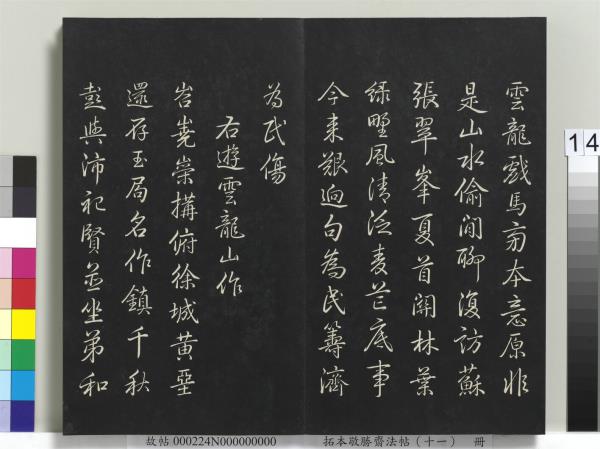 雲龍戲馬本意原非
是山水偷閒聊復訪蘇
張翠峯夏首開林葉
綠野風清泛麥芒底事
今來艱迥句為民籌濟
為民傷
右遊雲龍山作
岧嶤崇構俯徐城黃堊
還存玉局名作鎮千秋
彭與沛祀賢並坐弟和
14
故帖 000224N000000000 拓本敬勝齋法帖（十一） 冊